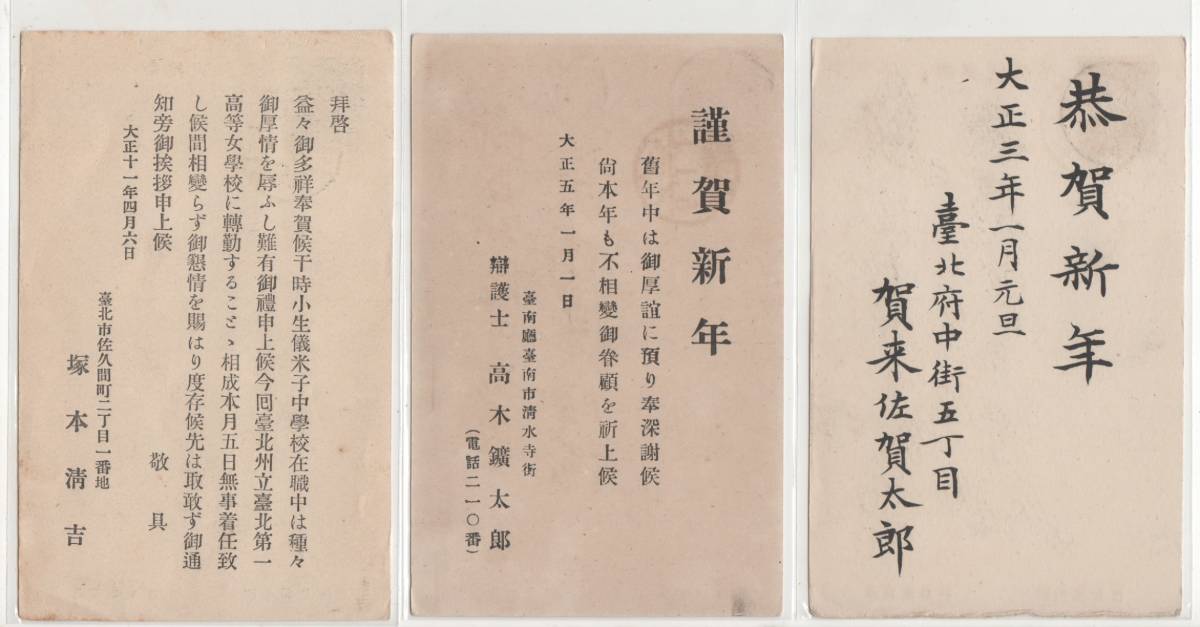 恭賀新年
大正三年一月元旦
臺北府中街五丁目
賀来佐賀太郎
謹賀新年
舊年中は御厚誼に預り奉深謝候
尙本年も不相變御眷顧を祈上候
大正五年一月一日
臺南廳臺南市淸水寺街
辯護士 高木鑛太郎
(電話二一〇番)
拜啓
益々御多祥奉賀候干時小生儀米子中學校在職中は種々
御厚情を辱ふし難有御禮申上候今囘臺北州立臺北第一
高等女學校に轉勤することゝ相成本月五日無事着任致
し候間相變らず御懇情を賜はり度存候先は取敢ず御通
知旁御挨拶申上候
敬具
大正十一年四月六日
臺北市佐久間町二丁目一番地
塚本淸吉